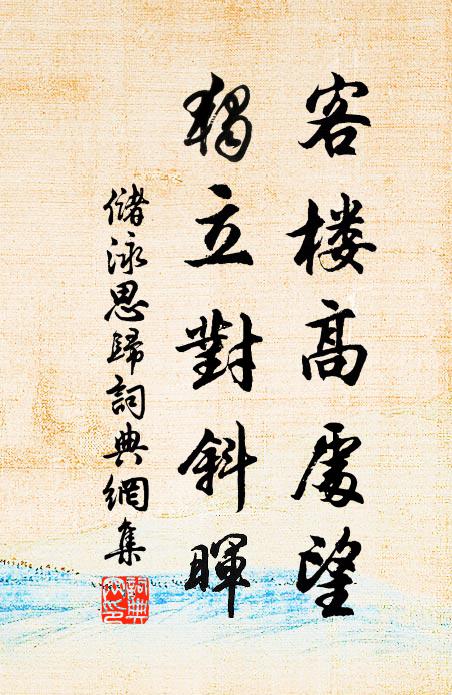 客楼高處望
獨立對斜暉
儲泳思歸詞典網集